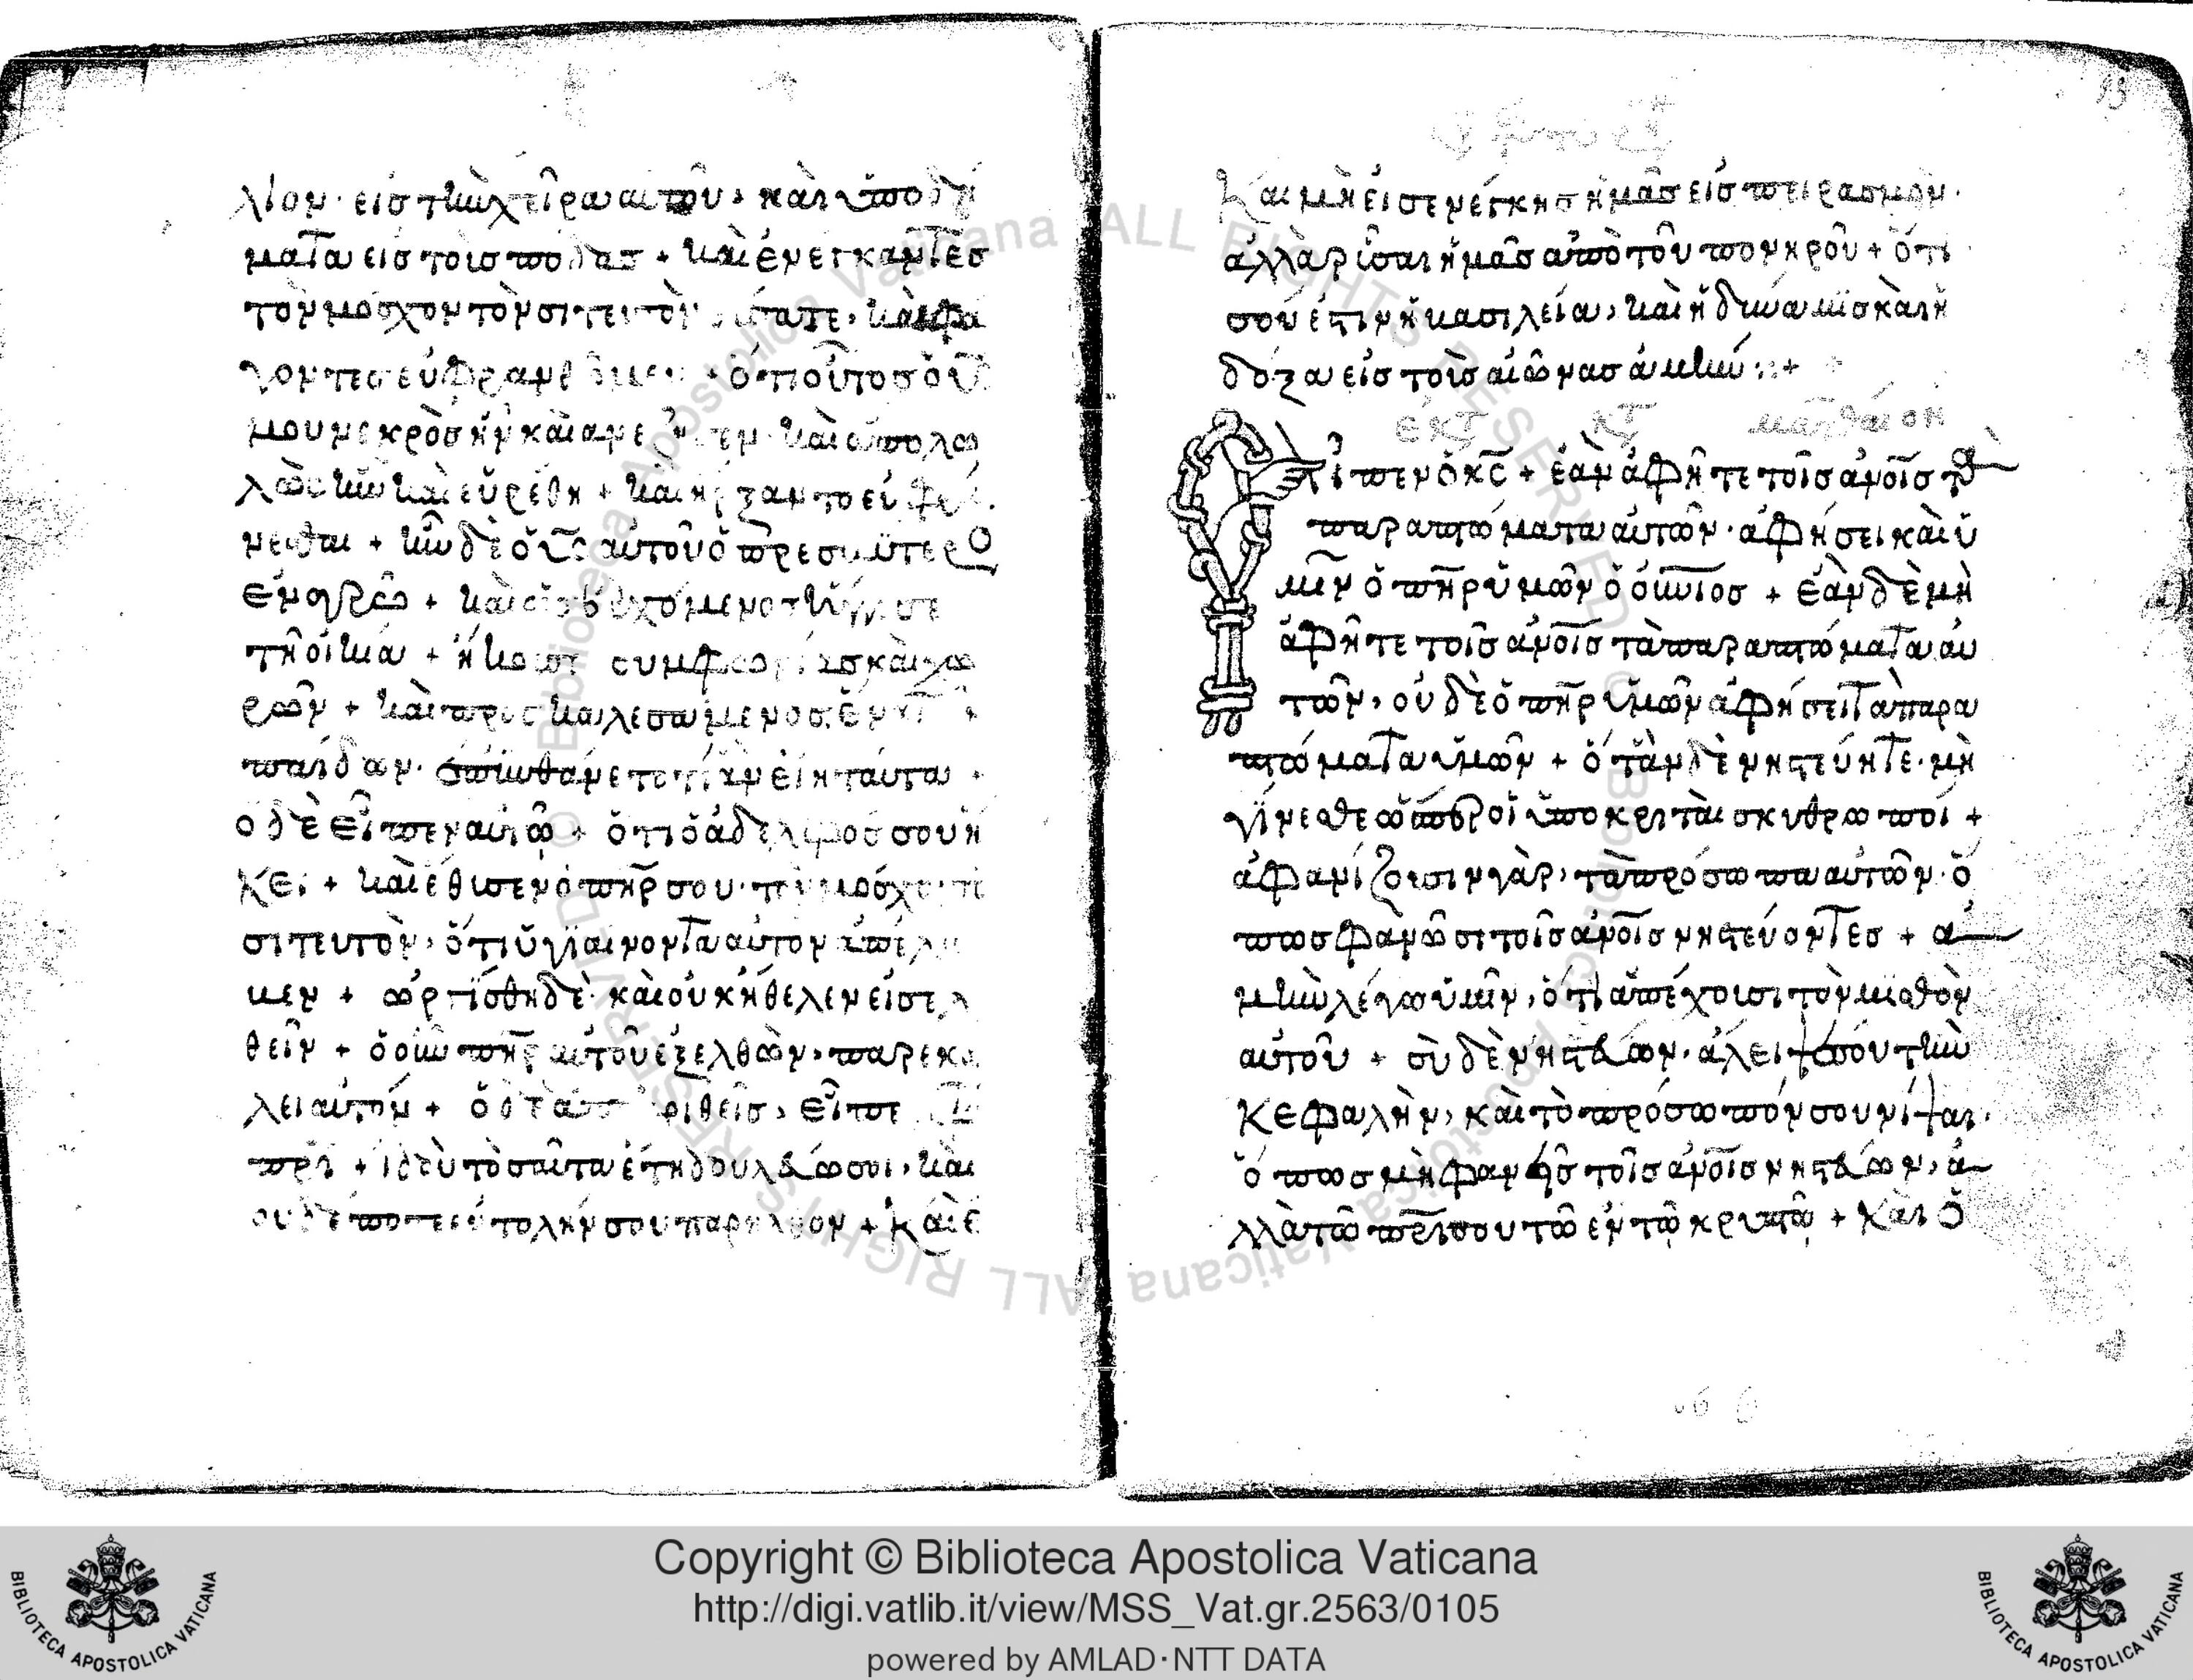 λιον· εἰς τὴν χεῖρα αὐτοῦ, καὶ ὑποδή
ματα εἰς τοὺς πόδας + καὶ ἐνέγκαντες
τὸν μόσχον τὸν σιτευτὸν, καὶ φα
γόντες εὐφρανθῶμεν + ὅτι οὗτος ὁ υς
μου νεκρὸς ἦν καὶ καὶ ἀπολω
λὼς ἦν καὶ εὑρέθη + καὶ ἤρξαντο εὐφραί
νεσθαι + ἦν δὲ ὁ υς αὐτοῦ ὁ πρεσβύτερο
ἐν ἀγρῶ + καὶ ἐρχόμενος ἤγγισε
τῆ οἰκία + ἤκουσε συμφωνίας καὶ χο
ρῶν + καὶ προσκαλεσάμενος ἕνα
παίδων· ἐπυνθάνετο τί ἂν εἴη ταῦτα +
ὁ δὲ εἶπεν αὐτῶ + ὅτι ὁ ἀδελφός σου ἥ
κει + καὶ ἔθυσεν ὁ πηρ σου· τὸν μόσχον τὸν
σιτευτὸν, ὅτι ὑγιαίνοντα αὐτὸν ἀπέλα
βεν + ὠργίσθη δὲ· καὶ οὐκ ἤθελεν εἰσελ
θεῖν + ὁ οὖν πηρ αὐτοῦ ἐξελθὼν, παρεκά
λει αὐτόν + ὁ δὲ ἀποκριθεὶς, εἶπε
πρι + ἰδοὺ τοσαῦτα ἔτη δουλεύω σοι, καὶ
οὐδέποτε ἐντολήν σου παρῆλθον + καὶ ἐ
Καὶ μὴ εἰσενέγκης ἡμᾶς εἰς πειρασμὸν·
ἀλλὰ ῥῦσαι ἡμᾶς ἀπὸ τοῦ πονηροῦ + ὅτι
σοῦ ἐστιν ἡ βασιλεία, καὶ ἡ δύναμις καὶ ἡ
δόξα εἰς τοὺς αἰῶνας ἀμήν :: +
ἐκ τ κτ ματθαῖον
Εἶπεν ὁ κς + ἐὰν ἀφῆτε τοῖς ἀνοις τὰ
παραπτώματα αὐτῶν· ἀφήσει καὶ ὑ
μῖν ὁ πηρ ὑμῶν ὁ οὐνιος + ἐὰν δὲ μὴ
ἀφῆτε τοῖς ἀνοις τὰ παραπτώματα αὐ
τῶν, οὐδὲ ὁ πηρ ὑμῶν ἀφήσει τὰ παρα
πτώματα ὑμῶν + ὅταν δὲ νηστεύητε· μὴ
γίνεσθε ὥσπερ οἱ ὑποκριταὶ σκυθρωποί +
ἀφανίζουσιν γὰρ, τὰ πρόσωπα αὐτῶν· ὅ
πως φανῶσι τοῖς ἀνοις νηστεύοντες + ἀ
μὴν λέγω ὑμῖν, ὅτι ἀπέχουσι τὸν μισθὸν
αὐτοῦ + σὺ δὲ νηστεύων· ἄλειψαί σου τὴν
κεφαλὴν, καὶ τὸ πρόσωπόν σου νίψαι·
ὅπως μὴ φανῆς τοῖς ἀνοις νηστεύων, ἀ
λλὰ τῶ πρι σου τῶ ἐν τῷ κρυπτῷ + καὶ ὁ
Copyright © Biblioteca Apostolica Vaticana
http://digi.vatlib.it/view/MSS_Vat.gr.2563/0105
powered by AMLAD·NTT DATA